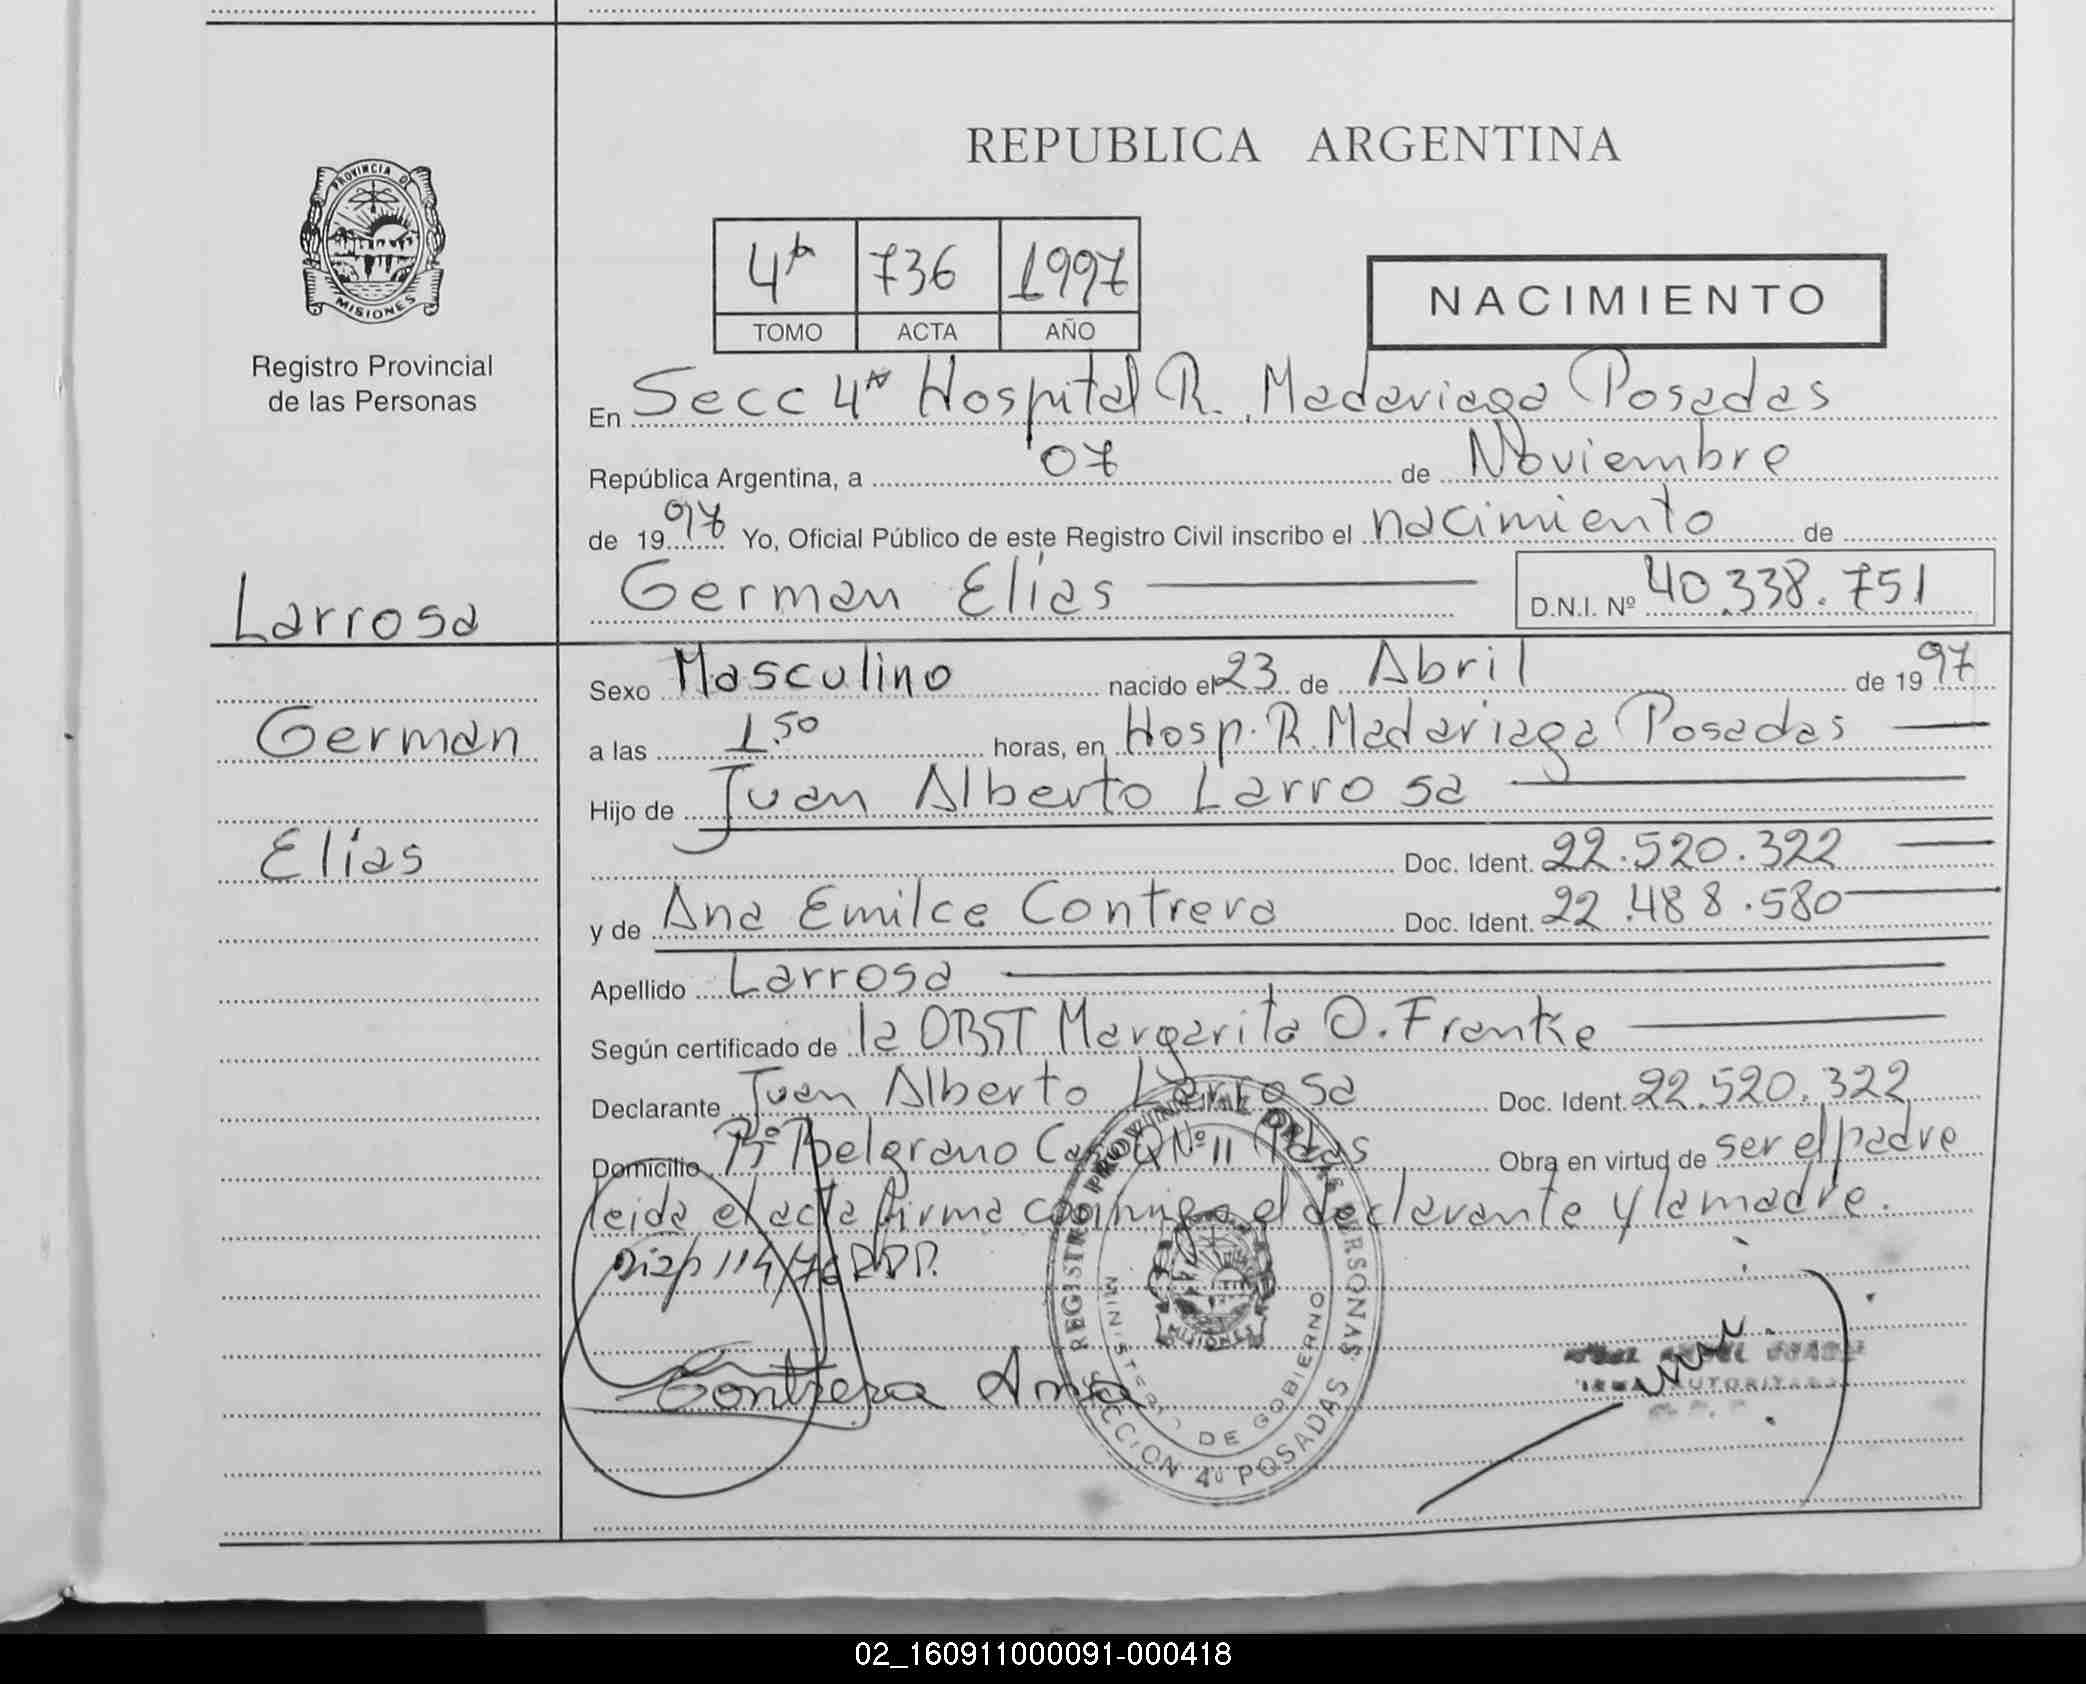 REPUBLICA ARGENTINA
PROVINCIA DE
MISIONES
Registro Provincial
de las Personas
4ta 736 1997
TOMO ACTA AÑO
NACIMIENTO
En Secc 4ta Hospital R. Madariaga Posadas
República Argentina, a 07 de Noviembre
de 1997 Yo, Oficial Público de este Registro Civil inscribo el nacimiento de
German Elías D.N.I. Nº 40.338.751
Larrosa
German
Elías
Sexo Masculino nacido el 23 de Abril de 1997
a las 1.50 horas, en Hosp. R. Madariaga Posadas
Hijo de Juan Alberto Larrosa
Doc. Ident. 22.520.322
y de Ana Emilce Contrera Doc. Ident. 22.488.580
Apellido Larrosa
Según certificado de la OBST Margarita O. Franke
Declarante Juan Alberto Larrosa Doc. Ident. 22.520.322
Domicilio Bº Belgrano Casa Nº 11 Pdas Obra en virtud de ser el padre
leida el acta firma conmigo el declarante y la madre.
Disp 114/76 RPP.
Contrera Ana
REGISTRO PROVINCIAL DE LAS PERSONAS
MINISTERIO DE GOBIERNO
MISIONES
SECCION 4º POSADAS
02_160911000091-000418